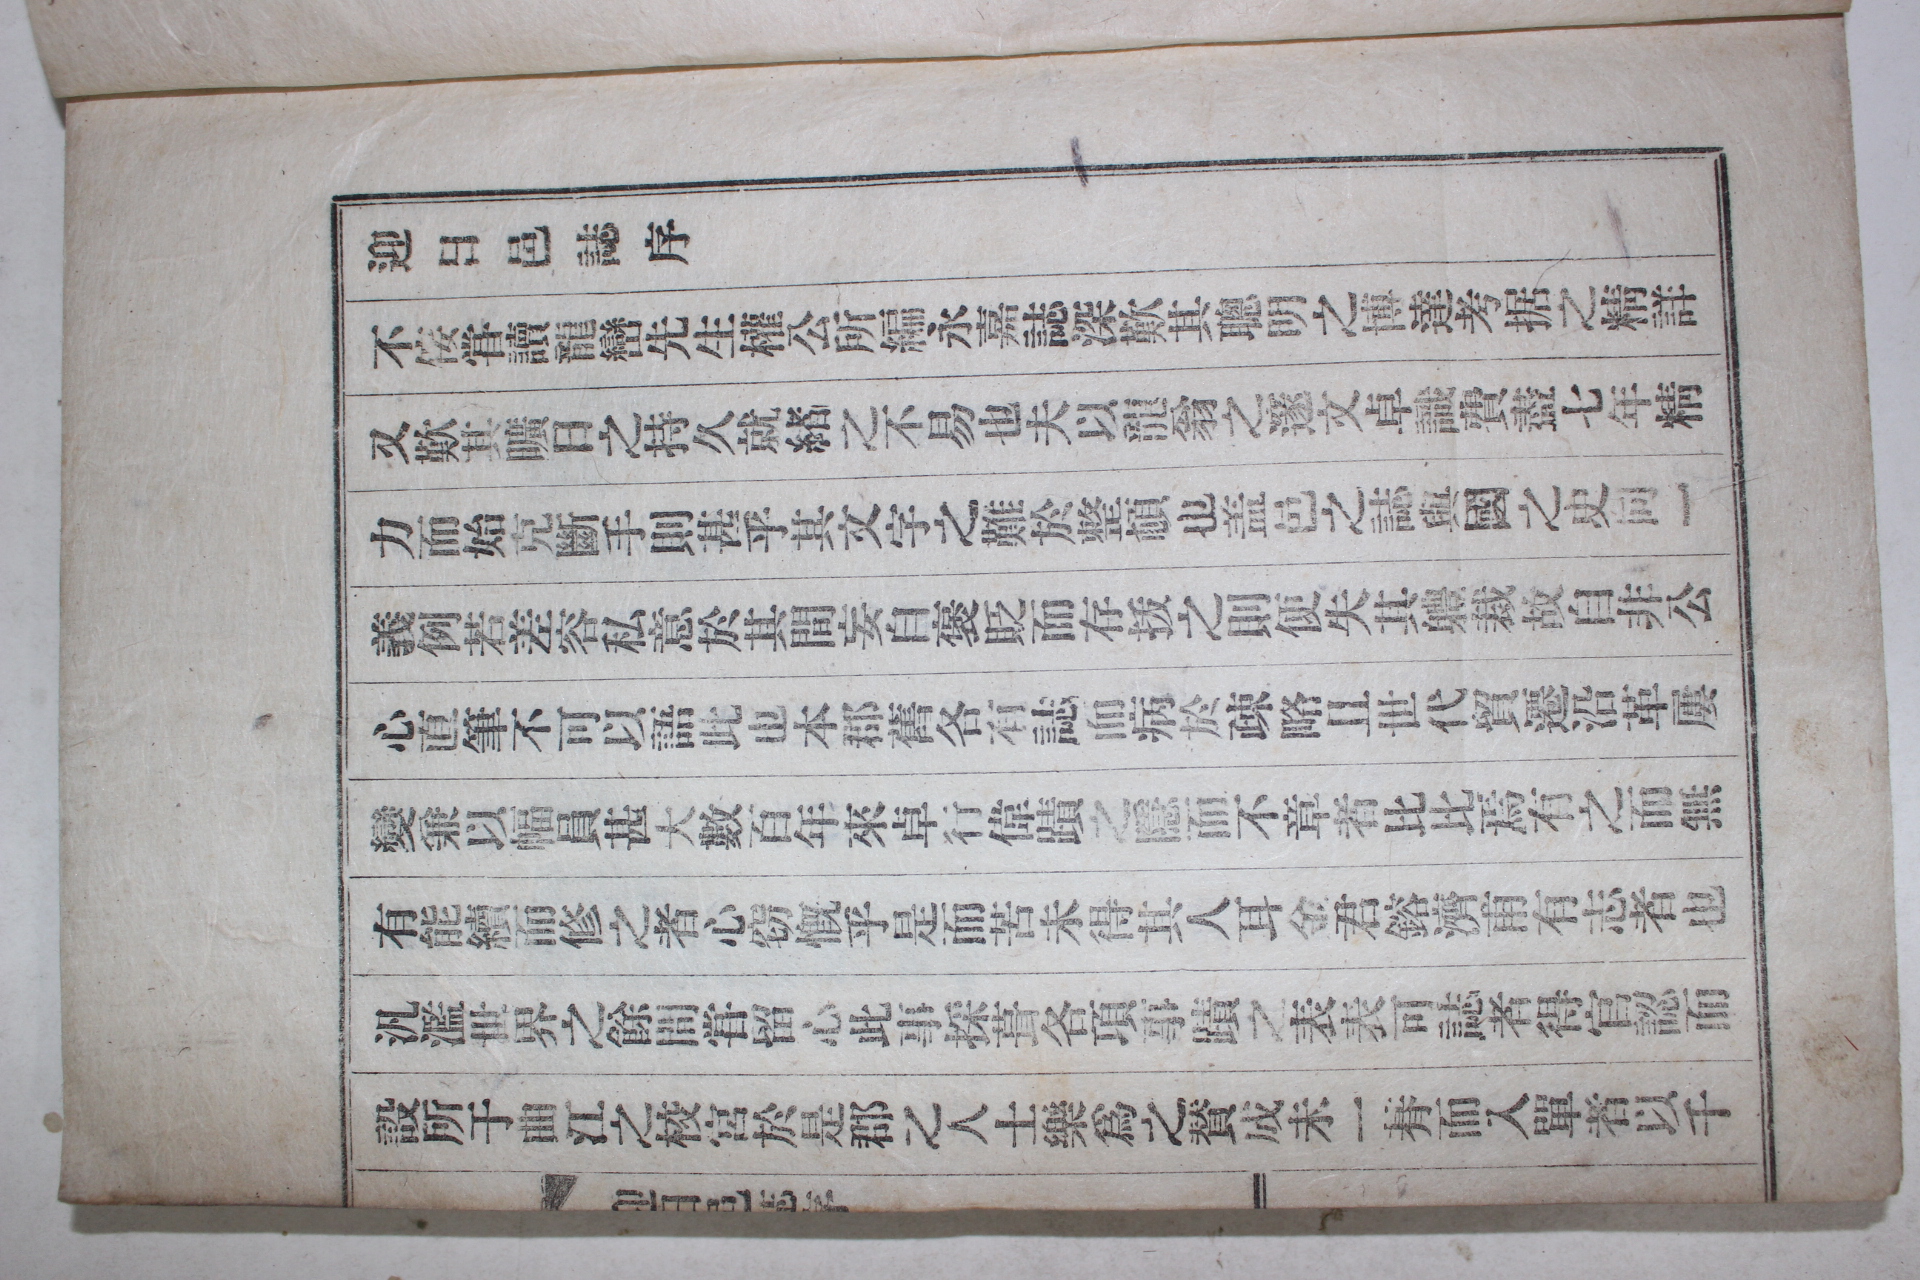 迎日邑誌序
不佞嘗讀龍巒先生權公所編永嘉誌深歎其聰明之博達考据之精詳
又歎其曠日之持久就緖之不易也夫以龍翁之邃文卓識費盡七年精
力而始克斷手則甚乎其文字之難於整頓也盖邑之誌與國之史同一
義例若差容私意於其間妄自褒貶而存拔之則便失其體裁故自非公
心直筆不可以語此也本郡舊各有誌而病於疎略且世代貿遷沿革屢
變兼以幅員甚大數百年來卓行偉蹟之隱而不章者比比焉有之而無
有能續而修之者心竊慨乎是而苦未得其人耳金君鎔濟甫有志者也
汎濫世界之餘間嘗留心此事採輯各項事蹟之表表可誌者得官認而
設所于曲江之校宮於是郡之人士樂爲之贊成未一朞而人單者以千
迎日邑誌序